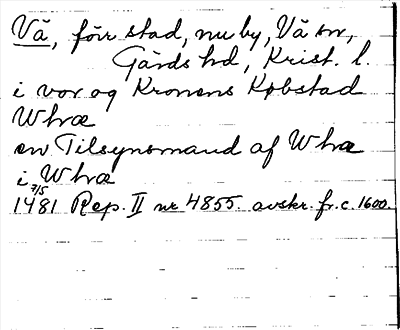 Vä, förr stad, nu by, Vä sn,
Gärds hd, Krist. l.
i vor og Kronens Købstad
Whræ
en Tilsynsmand af Whræ
i Whræ
1481 7/5 Rep. II nr 4855. avskr. fr. c. 1600.